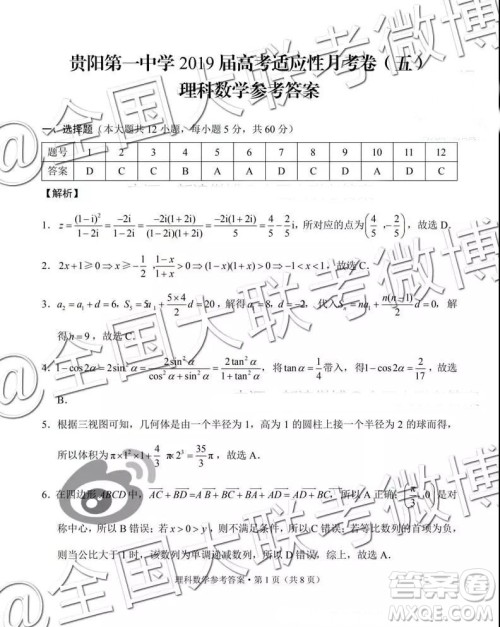 贵阳第一中学 2019 届高考适应性月考卷（五）
理科数学参考答案
一、选择题（本大题共 12 小题，每小题 5 分，共 60 分）
题号 1 2 3 4 5 6 7 8 9 10 11 12
答案 D C C B A A D C D C C
【解析】
1．z=(1-i)²/(1-2i)=-2i/(1-2i)=-2i(1+2i)/((1-2i)(1+2i))=-2i(1+2i)/5=4/5-2/5i，所对应的点为(4/5，-2/5)，故选 D．
2．2x+1≥0⇒x≥-1/2，(1-x)/(1+x)>0⇒(1-x)(1+x)>0⇒-1<x<1，故选 C．
3．a₂=a₁+d=6，S₅=5a₁+(5×4)/2 d=20，解得a₁=8，d=-2，代入Sₙ=na₁+n(n-1)/2 d，解
得n=9，故选 C．
4．1-cos2α=2sin²α=2sin²α/(cos²α+sin²α)=2tan²α/(1+tan²α)，将tanα=1/4带入，得1-cos2α=2/17，故选
B．
5．根据三视图可知，几何体是由一个半径为 1，高为 1 的圆柱上接一个半径为 2 的球而得，
所以体积为π×1²×1+4/3 π×2³=35/3 π，故选 A．
6．在四边形ABCD中，AC+BD=AB+BC+BD=BC+AD，所以 A 正确；π/3，0 是对
称中心，所以 B 错误；若x>0>y，则 C 错误；若等比数列的首项为负，
则当公比大于 1 时，该数列为单调递减数列，所以 D 错误，综上，故选 A．
理科数学参考答案・第 1 页（共 8 页）
@全国大联考微博
答案圈